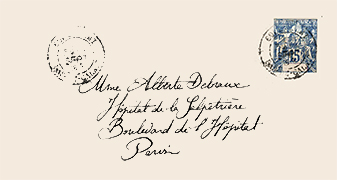 15
Mme Alberte Debraux
Hôpital de la Salpêtrière
Boulevard de l'Hôpital
Paris